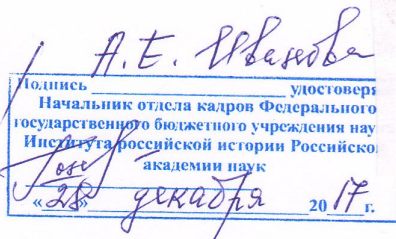 А. Е. Иванова
Подпись удостоверя
Начальник отдела кадров Федерального
государственного бюджетного учреждения нау
Института российской истории Российско
академии наук
«28» декабря 2017 г.